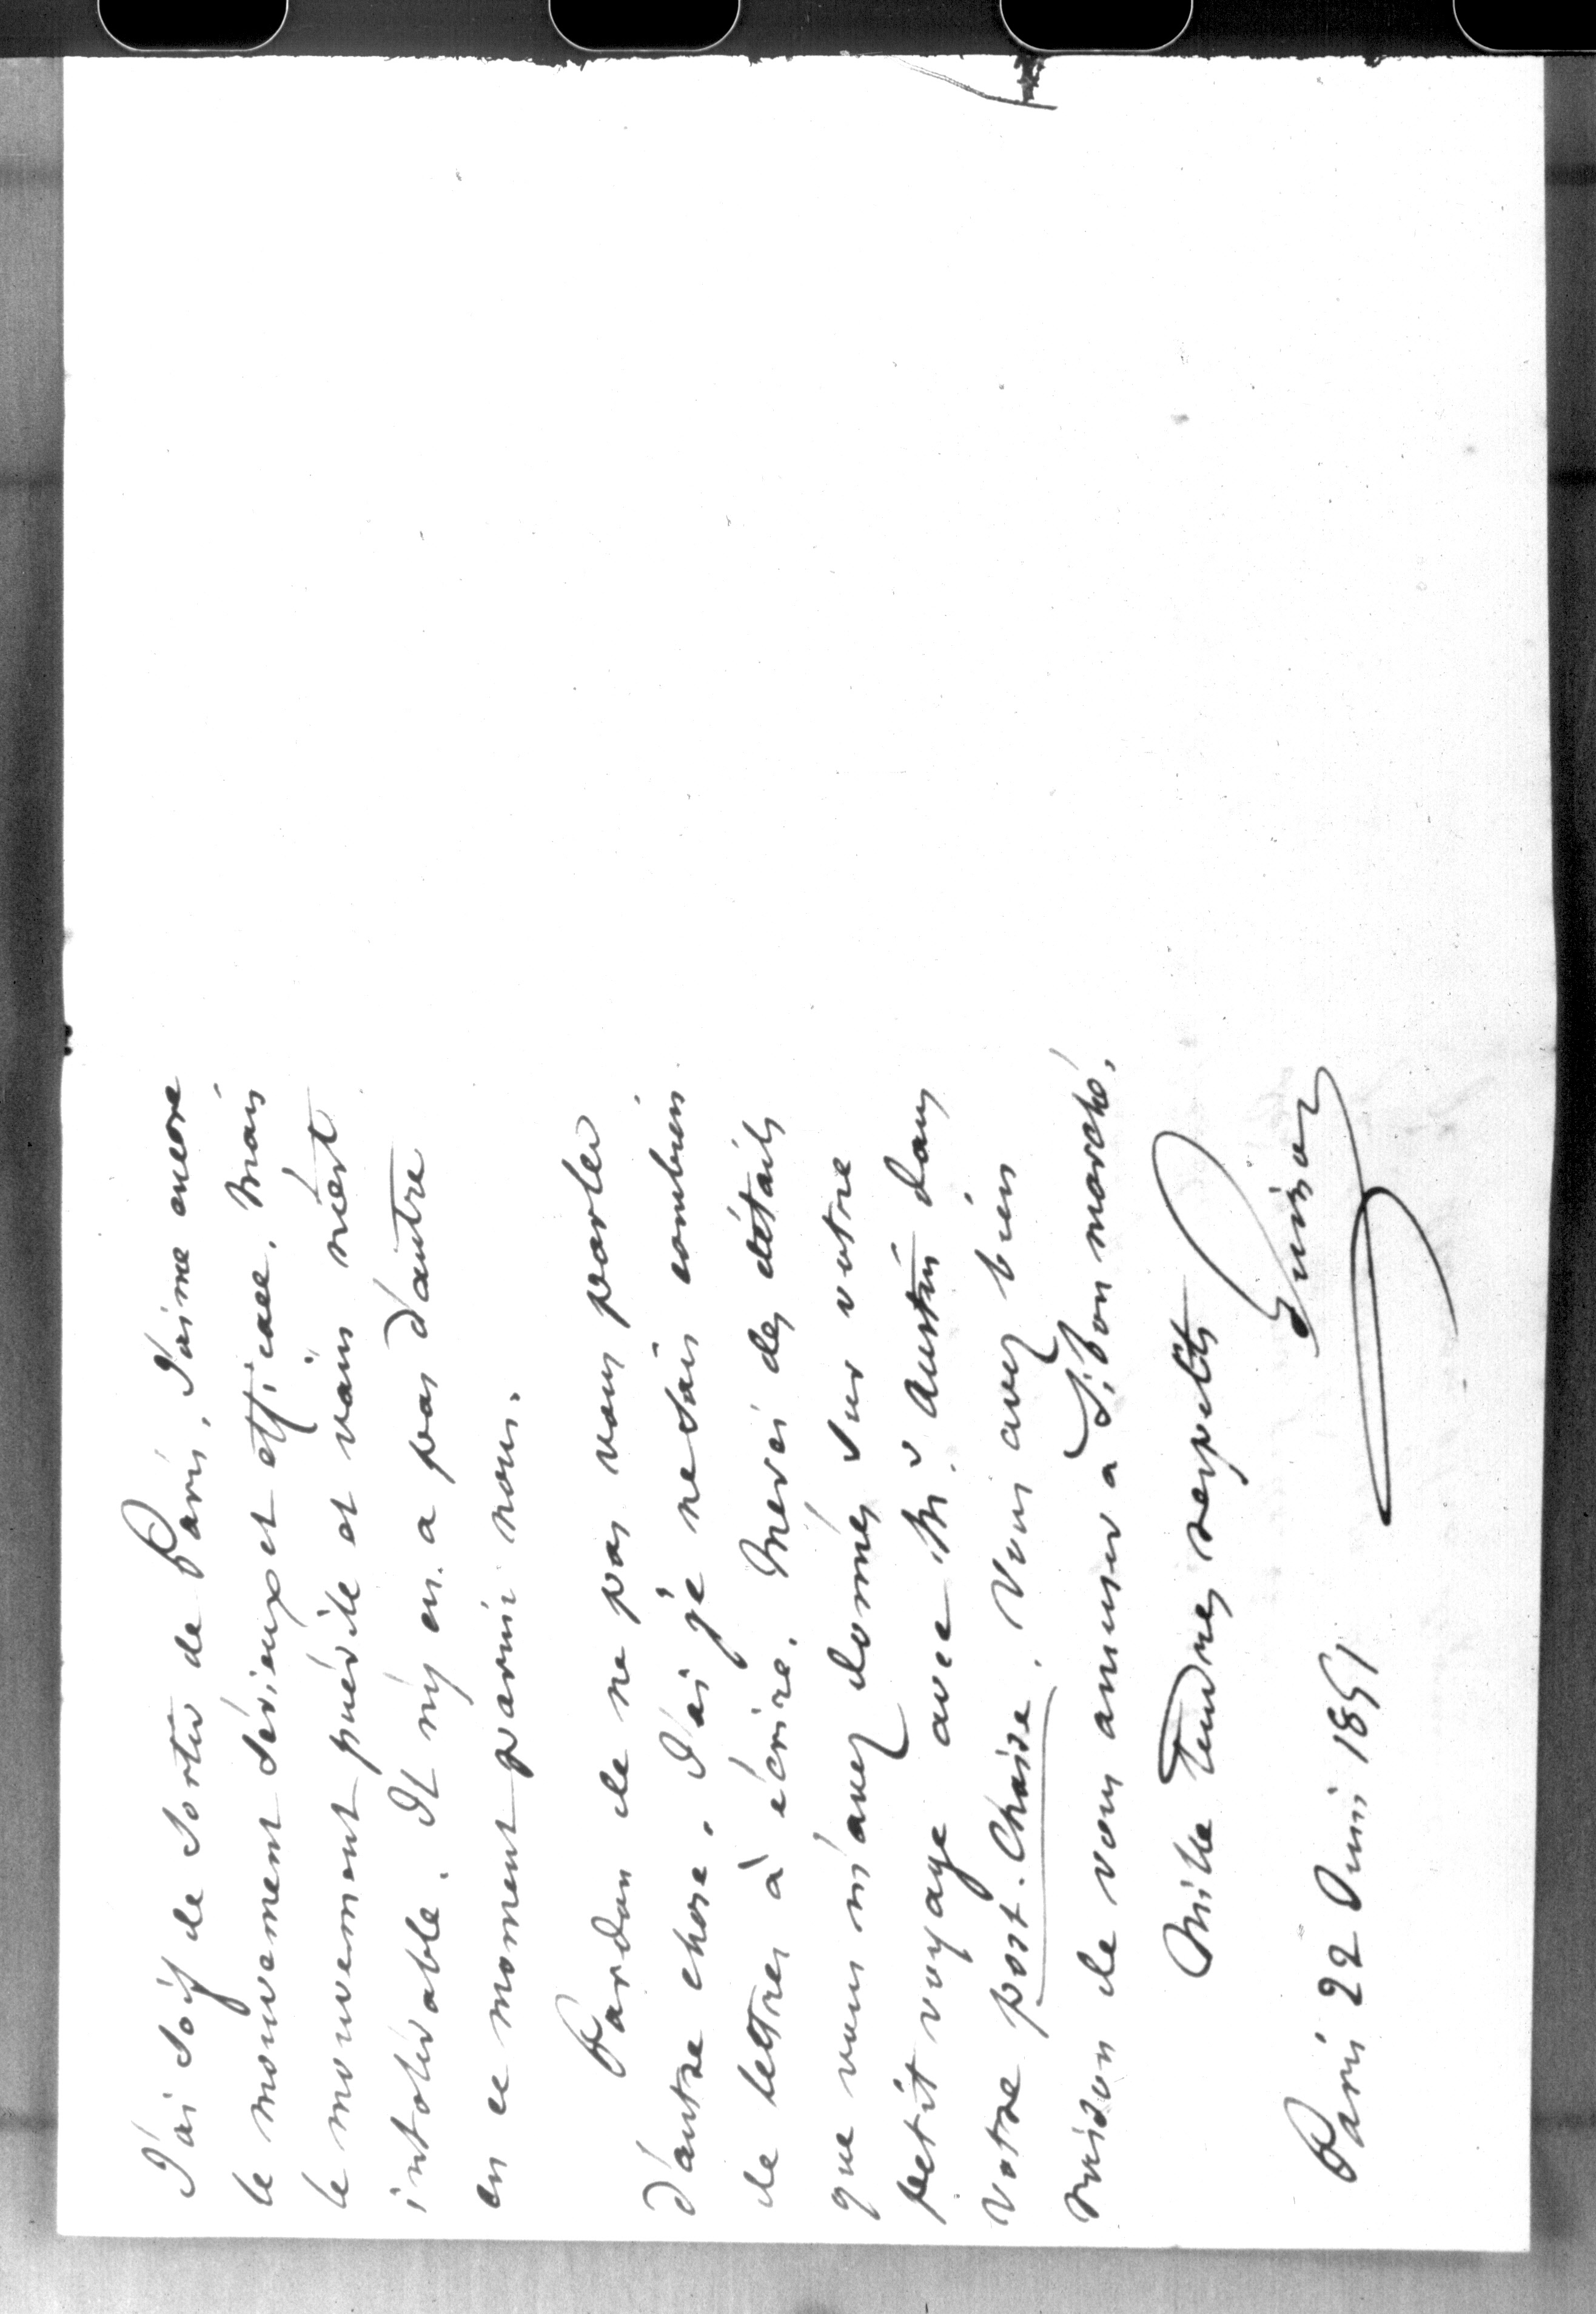 J'ai soif de sortir de Paris. J'aime encore
le mouvement sérieux et efficace. Mais
le mouvement puérile et vain m'est
intolérable. Il n'y en a pas d'autre
en ce moment parmi nous.
Pardon de ne pas vous parler
d'autre chose. J'ai je ne sais combien
de lettres à écrire. Merci des détails
que vous m'avez donnés sur votre
petit voyage avec Mrs Austin dans
votre post-chaise. Vous avez bien
raison de vous amuser à si bon marché.
Mille tendres respects
Guizot
Paris 22 Juin 1851